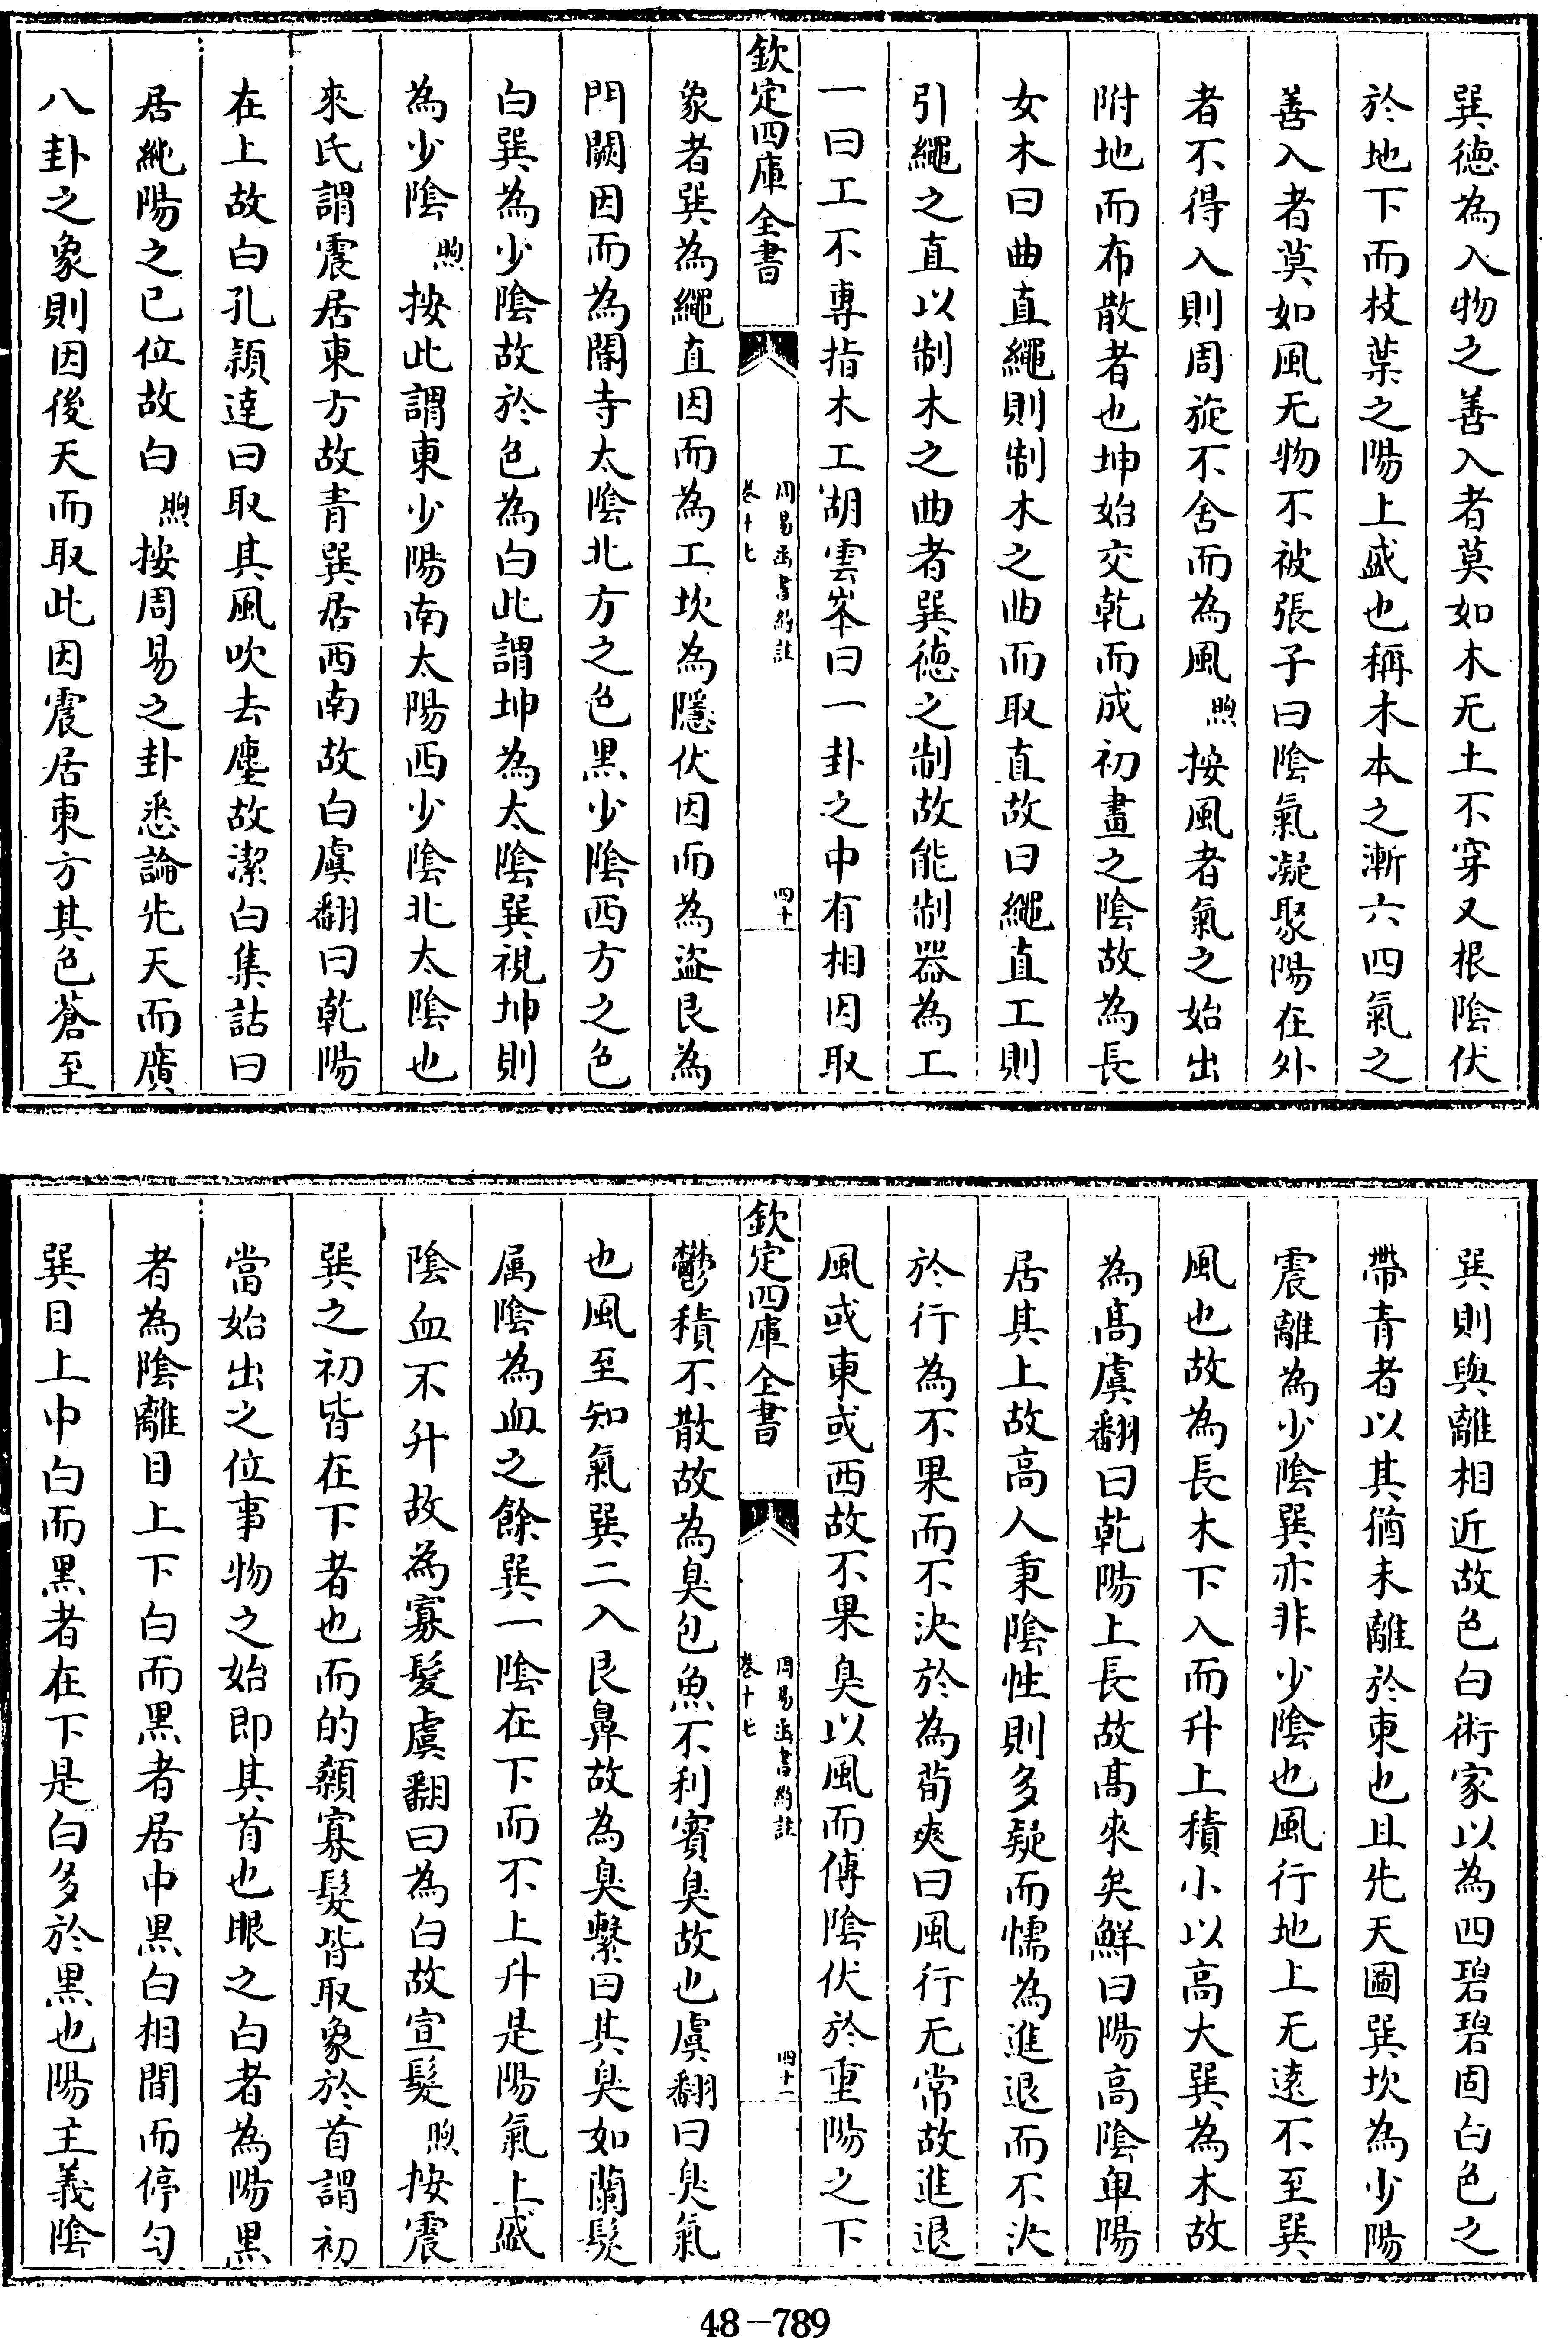 巽德為入物之善入者莫如木无土不穿又根陰伏
於地下而枝葉之陽上盛也稱木本之漸六四氣之
善入者莫如風无物不被張子曰陰氣凝聚陽在外
者不得入則周旋不舍而為風煦按風者氣之始出
附地而布散者也坤始交乾而成初畫之陰故為長
女木曰曲直繩則制木之曲而取直故曰繩直工則
引繩之直以制木之曲者巽德之制故能制器為工
一曰工不專指木工胡雲峯曰一卦之中有相因取
欽定四庫全書
周易函書約註
卷十七
四十
象者巽為繩直因而為工坎為隱伏因而為盜艮為
門闕因而為閽寺太陰北方之色黑少陰西方之色
白巽為少陰故於色為白此謂坤為太陰巽視坤則
為少陰煦按此謂東少陽南太陽西少陰北太陰也
來氏謂震居東方故青巽居西南故白虞翻曰乾陽
在上故白孔穎達曰取其風吹去塵故潔白集詁曰
居純陽之已位故白煦按周易之卦悉論先天而廣
八卦之象則因後天而取此因震居東方其色蒼至
巽則與離相近故色白術家以為四碧碧固白色之
帶青者以其猶未離於東也且先天圖巽坎為少陽
震離為少陰巽亦非少陰也風行地上无遠不至巽
風也故為長木下入而升上積小以高大巽為木故
為髙虞翻曰乾陽上長故髙來矣鮮曰陽高陰卑陽
居其上故高人秉陰性則多疑而懦為進退而不決
於行為不果而不決於為荀爽曰風行无常故進退
風或東或西故不果臭以風而傳陰伏於重陽之下
欽定四庫全書
周易函書約註
卷十七
四十一
鬱積不散故為臭包魚不利賓臭故也虞翻曰臭氣
也風至知氣巽二入艮鼻故為臭繫曰其臭如蘭髮
属陰為血之餘巽一陰在下而不上升是陽氣上盛
陰血不升故為寡髮虞翻曰為白故宣髮煦按震
巽之初皆在下者也而的顙寡髮皆取象於首謂初
當始出之位事物之始即其首也眼之白者為陽黒
者為陰離目上下白而黒者居中黒白相間而停勻
巽目上中白而黒者在下是白多於黒也陽主義陰
48-789